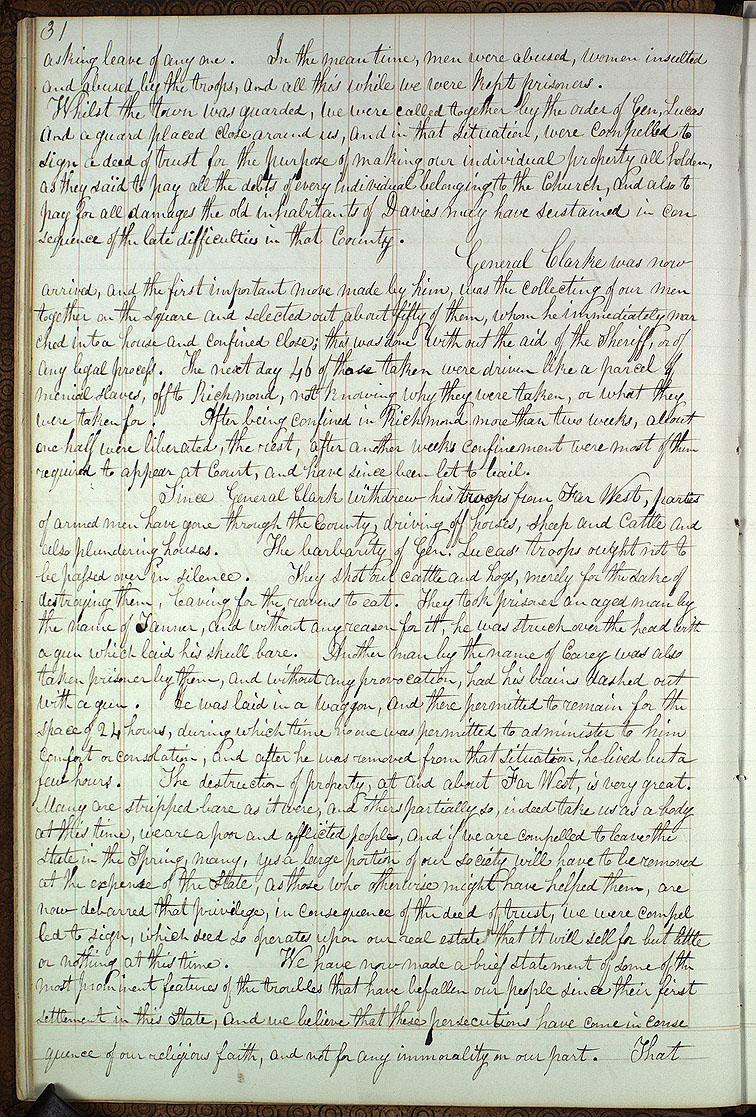 31
asking leave of any one. In the mean time, men were abused, women insulted
and abused by the troops, and all this while we were kept prisoners.
Whilst the town was guarded, we were called together by the order of Gen, Lucas
and a guard placed close around us, and in that situation, were compelled to
sign a deed of trust for the purpose of making our individual property all holden,
as they said to pay all the debts of every individual belonging to the Church, and also to
pay for all damages the old inhabitants of Davies may have sustained in con
sequence of the late difficulties in that County.
General Clarke was now
arrived, and the first important move made by him, was the collecting of our men
together on the square and selected out about fifty of them, whom he immediately mar
ched into a house and confined close; this was done without the aid of the Sheriff, or of
any legal process. The next day 46 of those taken were driven like a parcel of
menial slaves, off to Richmond, not knowing why they were taken, or what they
were taken for. After being confined in Richmond more than two weeks, about
one half were liberated, the rest, after another week's confinement were most of them
required to appear at Court, and have since been let to bail.
Since General Clark withdrew his troops from Far West, parties
of armed men have gone through the County, driving off horses, sheep and Cattle and
also plundering houses. The barbarity of Gen. Lucas' troops ought not to
be passed over in silence. They shot our cattle and hogs, merely for the sake of
destroying them, leaving for the ravens to eat. They took prisoner an aged man by
the name of Tanner, and without any reason for it, he was struck over the head with
a gun which laid his skull bare. Another man by the name of Carey was also
taken prisoner by them, and without any provocation, had his brains dashed out
with a gun. He was laid in a waggon, and there permitted to remain for the
space of 24 hours, during which time no one was permitted to administer to him
comfort or consolation, and after he was removed from that situation, he lived but a
few hours. The destruction of property, at and about Far West, is very great.
Many are stripped bare as it were, and others partially so, indeed take us as a body
at this time, we are a poor and afflicted people, and if we are compelled to leave the
State in the Spring, many, yes a large portion of our society will have to be removed
at the expense of the State, as those who otherwise might have helped them, are
now debarred that privilege, in consequence of the deed of trust, we were compel
led to sign, which deed so operates upon our real estate that it will sell for but little
or nothing at this time. We have now made a brief statement of some of the
most prominent features of the troubles that have befallen our people since their first
settlement in this State, and we believe that these persecutions have come in conse
quence of our religious faith, and not for any immorality on our part. That